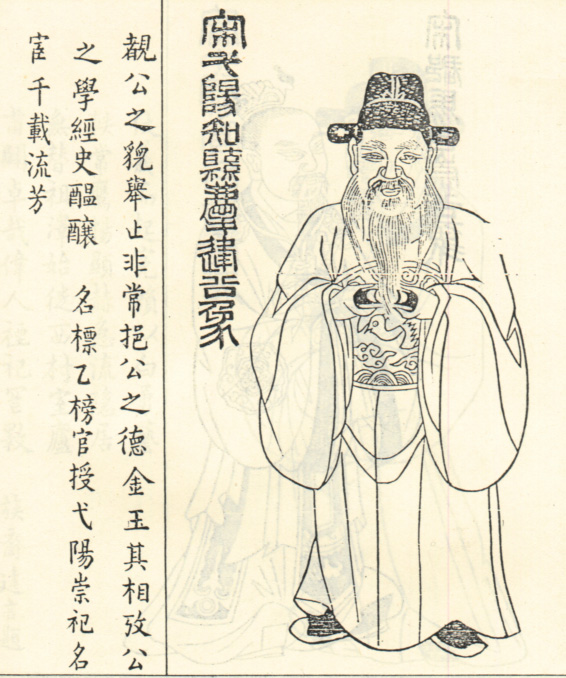 宋弋陽知縣建吉象
覩公之貌舉止非常挹公之德金玉其相攷公
之學經史醞釀　名標乙榜官授弋陽崇祀名
宦千載流芳